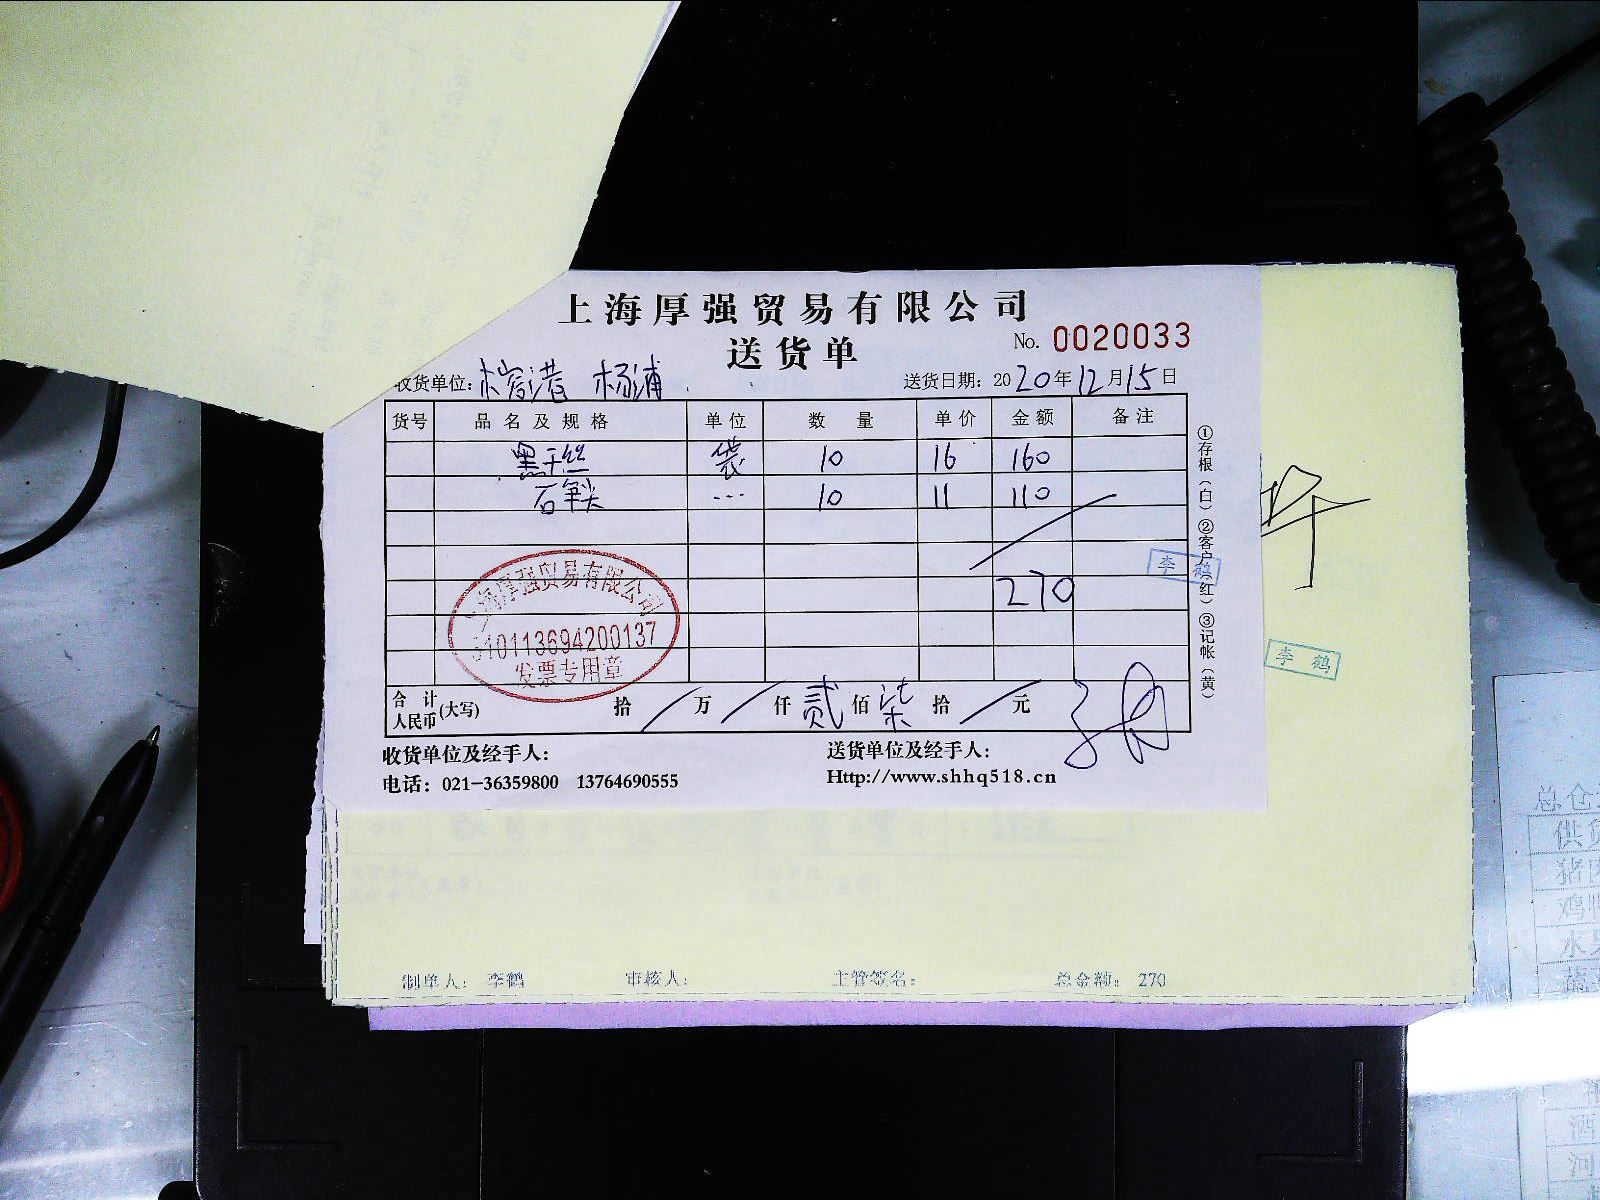 上海厚强贸易有限公司
送货单
No. 0020033
收货单位: 杨浦
送货日期: 2020年12月15日
货号 品名及规格 单位 数量 单价 金额 备注
黑干丝 袋 10 16 160
石笋尖 ... 10 11 110
270
①存根(白)②客户(红)③记帐(黄)
李鹤
上海厚强贸易有限公司
310113694200137
发票专用章
合计人民币(大写) 拾 万 仟 贰 佰 柒 拾 元
收货单位及经手人:
送货单位及经手人:
电话: 021-36359800 13764690555
Http://www.shhq518.cn
李鹤
制单人: 李鹤 审核人: 主管签名: 总金额: 270
总仓
供货
猪肉
鸡鸭
水果
酒
河